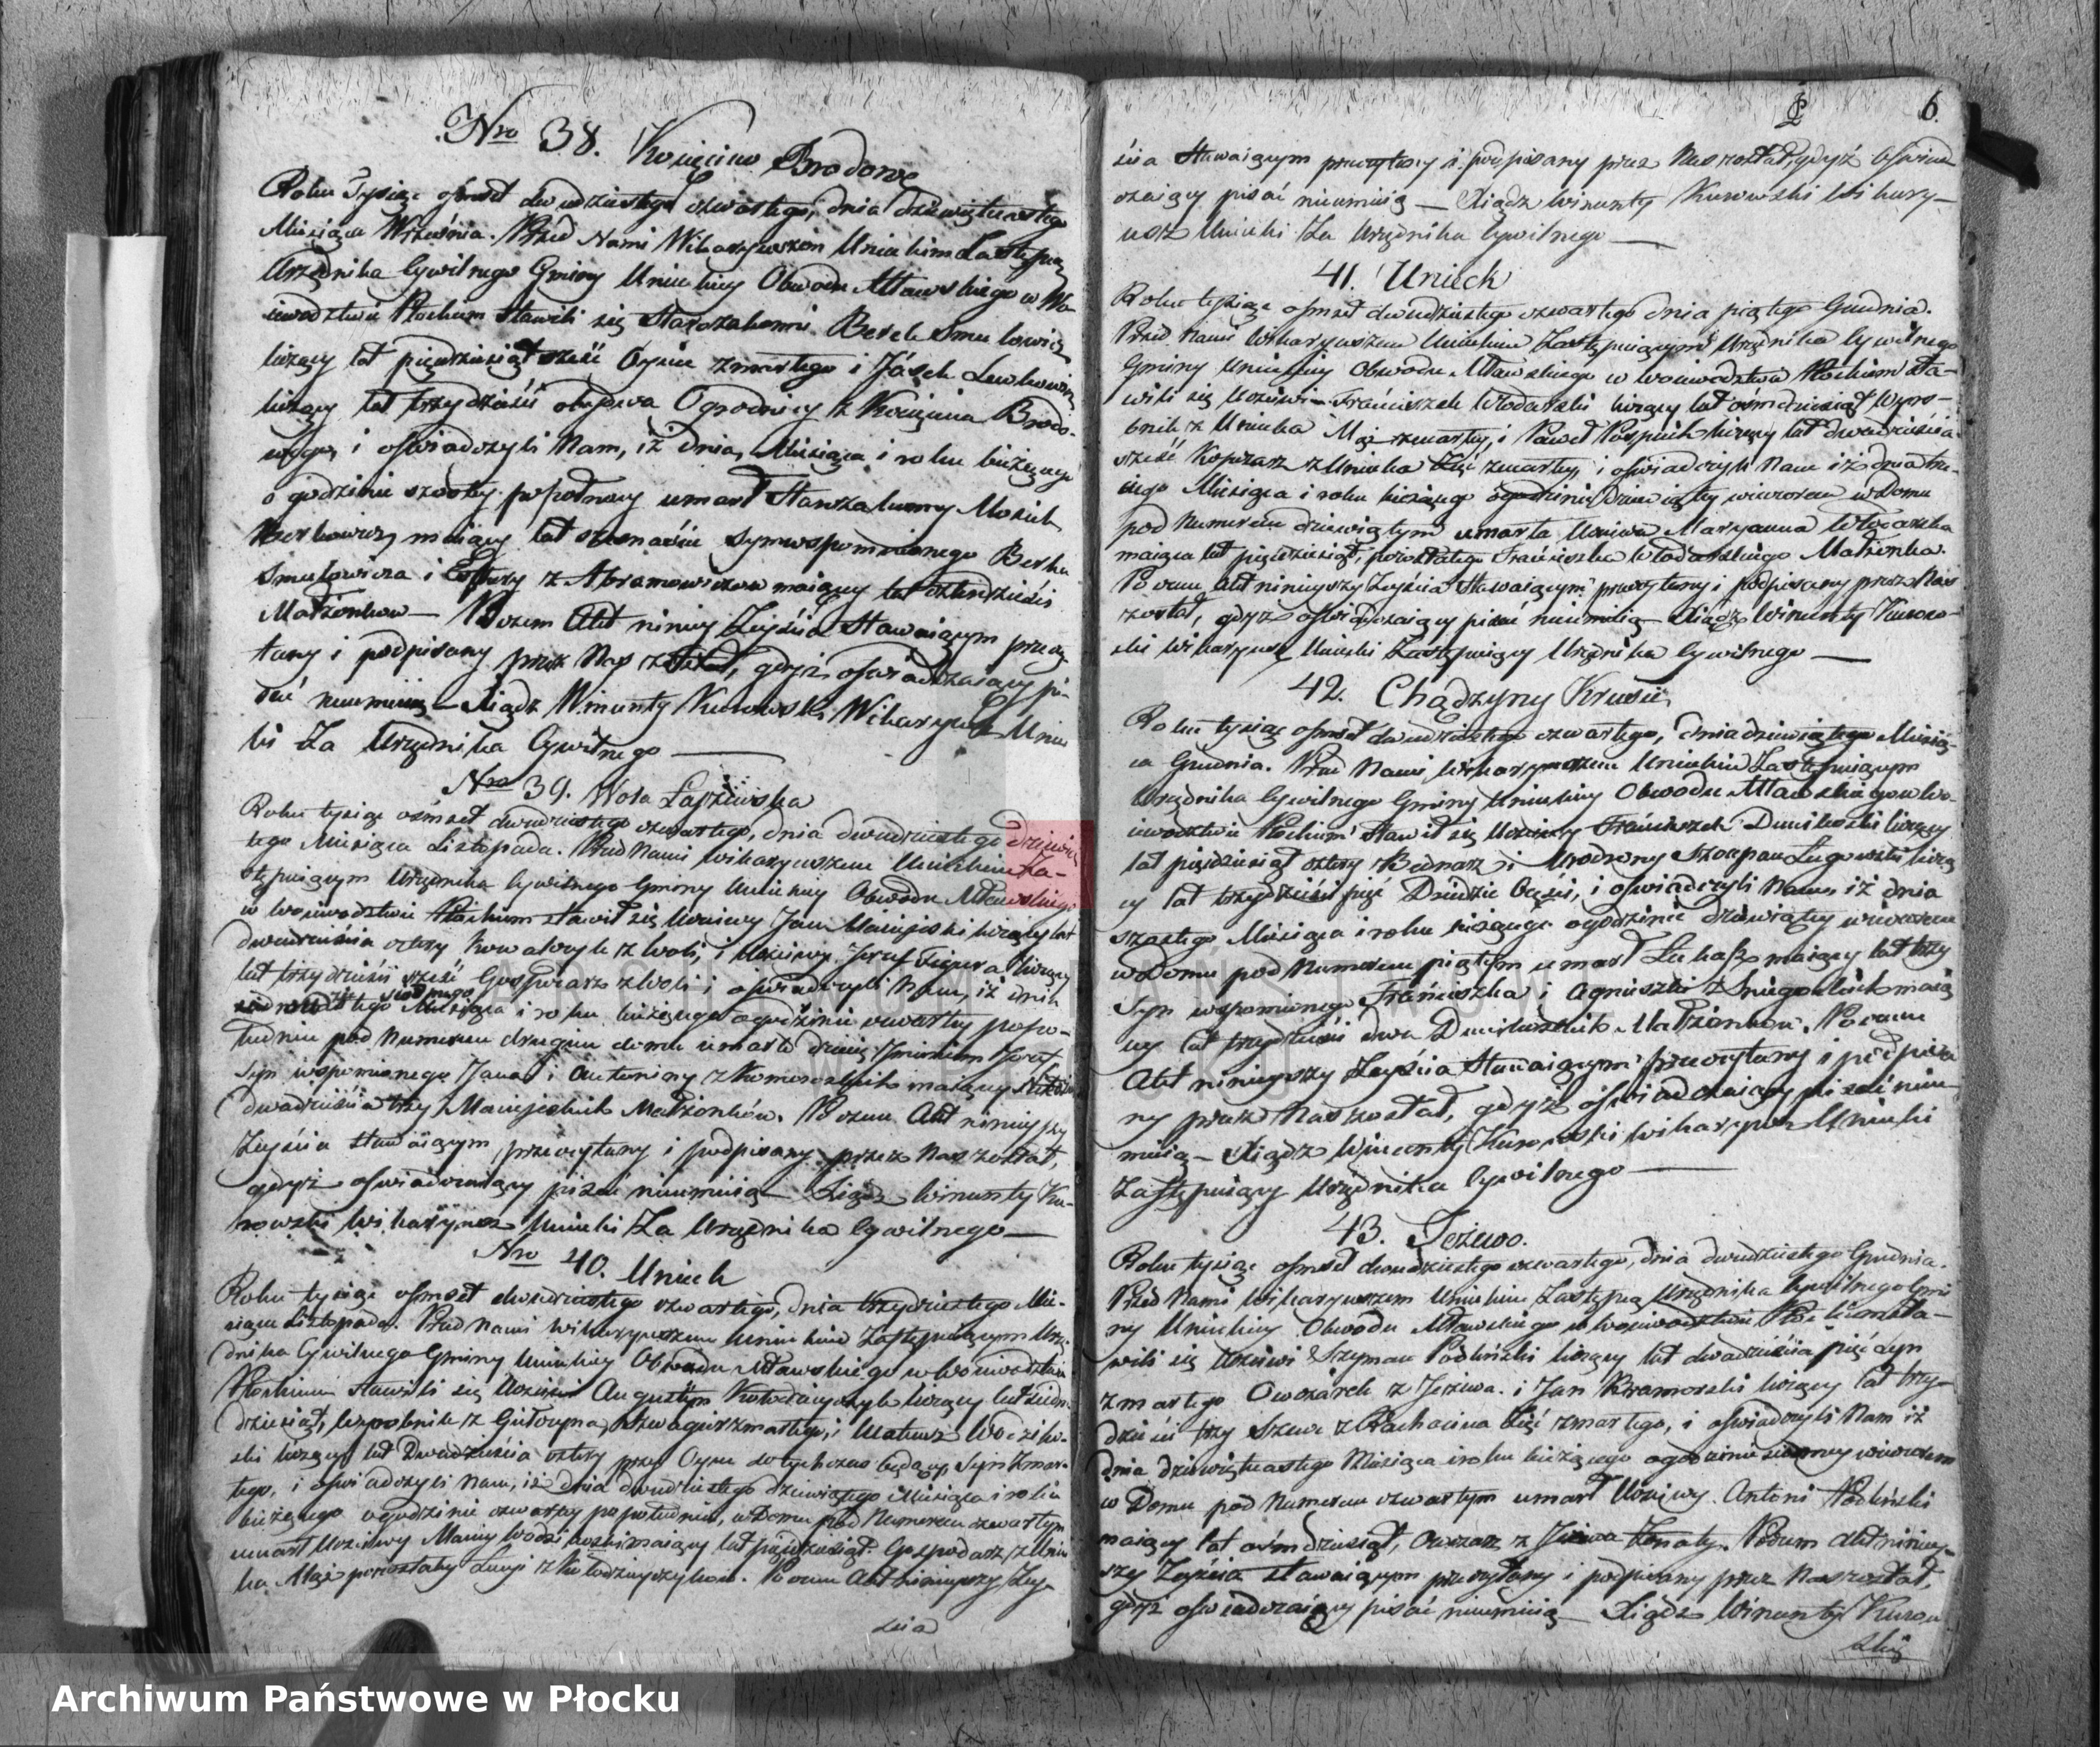 Nro 38. Kosięcino Brodowe
Roku Tysiąc ośmset dwudziestego czwartego, dnia dziewiętnastego
Miesiąca Września. Przed Nami Wikaryuszem Unieckim Zastępcą
Urzędnika Cywilnego Gminy Unieckiey Obwodu Mławskiego w Wo-
iewodztwie Płockim Stawili się Starozakonni Berek Smulowicz
liczący lat pięćdziesiąt sześć Oyciec zmarłego i Jósek Lewkowicz
liczący lat trzydzieści obydwa Ogrodnicy z Kosięcina Brodo-
wego, i oświadczyli Nam, iż dnia, Miesiąca i roku bieżącego
o godzinie szóstey popołnocy umarł Starozakonny Mosiek
Berkowicz, maiący lat syn wspomnionego Berka
Smulowicza i Estery z Abramowiczow maiącey lat czterdzieści
Małżonkow — Poczem Akt niniey Zeyścia Stawaiącym przeczy
tany i podpisany przez Nas został, gdyż oświadczaiący pi-
sać nieumieią — Xiądz Wincenty Kurowski Wikaryusz Uniec
ki Za Urzędnika Cywilnego —
Nro 39. Wola Łapziewska
Roku tysiąc ośmset dwudziestego czwartego, dnia dwudziestego dziewią
tego Miesiąca Listopada. Przed Nami Wikaryuszem Unieckim Za-
stępuiącym Urzędnika Cywilnego Gminy Unieckiey Obwodu Mławskiego
w Woiewodztwie Płockim stawił się Uczciwy Jan Macieiewski liczący lat
dwadzieścia cztery Kowalczyk z Woli, i Uczciwy Jozef Figura liczący
lat trzydzieści sześć Gospodarz z Woli i oświadczyli Nam, iż dnia
siódmego Miesiąca i roku bieżącego o godzinie czwartey popo-
łudniu pod Numerem drugim domu umarło dziecię Imieniem Jozef
Syn wspomnionego Jana i Antoniny z maiącey
dwadzieścia trzy Małżonków. Poczem Akt ninieyszy
Zeyścia stawaiącym przeczytany i podpisany przez Nas został,
gdyż oświadczaiący pisać nieumieią — Xiądz Wincenty Ku-
rowski Wikaryusz Uniecki Za Urzędnika Cywilnego —
Nro 40. Unieck
Roku tysiąc ośmset dwudziestego czwartego, dnia trzydziestego Mie-
siąca Listopada. Przed Nami Wikaryuszem Unieckim Zastępuiącym Urzę-
dnika Cywilnego Gminy Unieckiey Obwodu Mławskiego w Woiewodztwie
Płockim stawili się Uczciwi Augustyn Kołodziyczyk liczący lat
dziesiąt, wyrobnik z szwagier zmarłego, i Mateusz
ski liczący lat Dwadzieścia cztery przy Oycu dotychczas będący, Syn Zmar-
łego, i oświadczyli Nam, iż dnia dwudziestego dziewiątego Miesiąca i roku
bieżącego o godzinie czwartey popołudniu, w Domu pod Numerem czwartym
umarł Uczciwy maiący lat pięćdziesiąt Gospodarz z Unie
ka Mąż pozostałey z Kołodziyczykow. Poczem Akt ninieyszy Zey-
ścia
6
ścia Stawaiącym przeczytany i podpisany przez Nas został gdyż oświad-
czaiący pisać nieumieią — Xiądz Wincenty Kurowski Wikary-
usz Uniecki Za Urzędnika Cywilnego —
41. Unieck
Roku tysiąc ośmset dwudziestego czwartego dnia piątego Grudnia.
Przed Nami Wikaryuszem Unieckim Zastępuiącym Urzędnika Cywilnego
Gminy Unieckiey Obwodu Mławskiego w Woiewodztwie Płockim sta-
wili się Uczciwi Franciszek Włodarski liczący lat ośmdziesiąt Wyro-
bnik z Uniecka Mąż zmarłey, i Paweł Pospiech liczący lat dwadzieścia
sześć z Uniecka Zięć zmarłey, i oświadczyli Nam iż dnia trze-
ciego Miesiąca i roku bieżącego o godzinie dziewiątey wieczorem w Domu
pod Numerem dziewiątym umarła Uczciwa Maryanna Włodarska
maiąca lat pięćdziesiąt, pozostałego Franciszka Włodarskiego Małżonka.
Poczem Akt ninieyszy Zeyścia Stawaiącym przeczytany i podpisany przez Nas
został, gdyż oświadczaiący pisać nieumieią — Xiądz Wincenty Kurow-
ski Wikaryusz Uniecki Zastępuiący Urzędnika Cywilnego —
42. Chądzyny Krusie
Roku tysiąc ośmset dwudziestego czwartego, dnia dziewiątego Miesią-
ca Grudnia. Przed Nami Wikaryuszem Unieckim Zastępuiącym
Urzędnika Cywilnego Gminy Unieckiey Obwodu Mławskiego w Wo-
iewodztwie Płockim stawił się Uczciwy Franciszek liczący
lat pięćdziesiąt cztery Bednarz i Urodzony Szczepan Łęgowski liczą
cy lat trzydzieści pięć Dziedzic Części, i oświadczyli Nam, iż dnia
szóstego Miesiąca i roku bieżącego o godzinie dziewiątey wieczorem
w Domu pod Numerem piątym umarł Łukasz maiący lat trzy
Syn wspomnionego Franciszka i Agnieszki z maią
cy lat trzydzieści dwa Małżonkow. Poczem
Akt ninieyszy Zeyścia Stawaiącym przeczytany i podpisa
ny przez Nas został, gdyż oświadczaiący pisać nieu-
mieią — Xiądz Wincenty Kurowski Wikaryusz Uniecki
Zastępuiący Urzędnika Cywilnego —
43. Jeżewo.
Roku tysiąc ośmset dwudziestego czwartego, dnia dwudziestego Grudnia.
Przed Nami Wikaryuszem Unieckim Zastępcą Urzędnika Cywilnego Gmi
ny Unieckiey Obwodu Mławskiego w Woiewodztwie Płockim sta-
wili się Uczciwi Szymon Podliński liczący lat dwadzieścia pięć syn
zmarłego Owczarek z Jeżewa i Jan Kramorski liczący lat trzy-
dzieści trzy Szewc z Zięć zmarłego, i oświadczyli Nam iż
dnia dziewiętnastego Miesiąca i roku bieżącego o godzinie siódmey wieczorem
w Domu pod Numerem czwartym umarł Uczciwy Antoni Podliński
maiący lat ośmdziesiąt, Owczarz z Jeżewa Żonaty. Poczem Akt niniey-
szy Zeyścia stawaiącym przeczytany i podpisany przez Nas został,
gdyż oświadczaiący pisać nieumieią — Xiądz Wincenty Kurow
ski
ARCHIWUM PAŃSTWOWE
W PŁOCKU
Archiwum Państwowe w Płocku